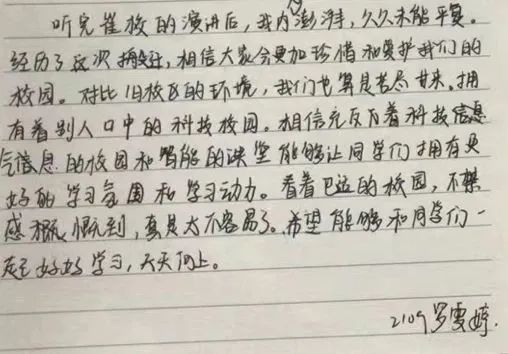 听完崔校的演讲后，我内心澎湃，久久未能平复。
经历了这次搬迁，相信大家会更加珍惜和爱护我们的
校园。对比旧校区的环境，我们也算是苦尽甘来。拥
有着别人口中的科技校园。相信充斥着科技信息
气信息的校园和智能的课堂能够让同学们拥有更
好的学习氛围和学习动力。看着巴适的校园，不禁
感概 概到，真是太不容易了。希望能够和同学们一
起好好学习，天天向上。
2109 罗雯婷.